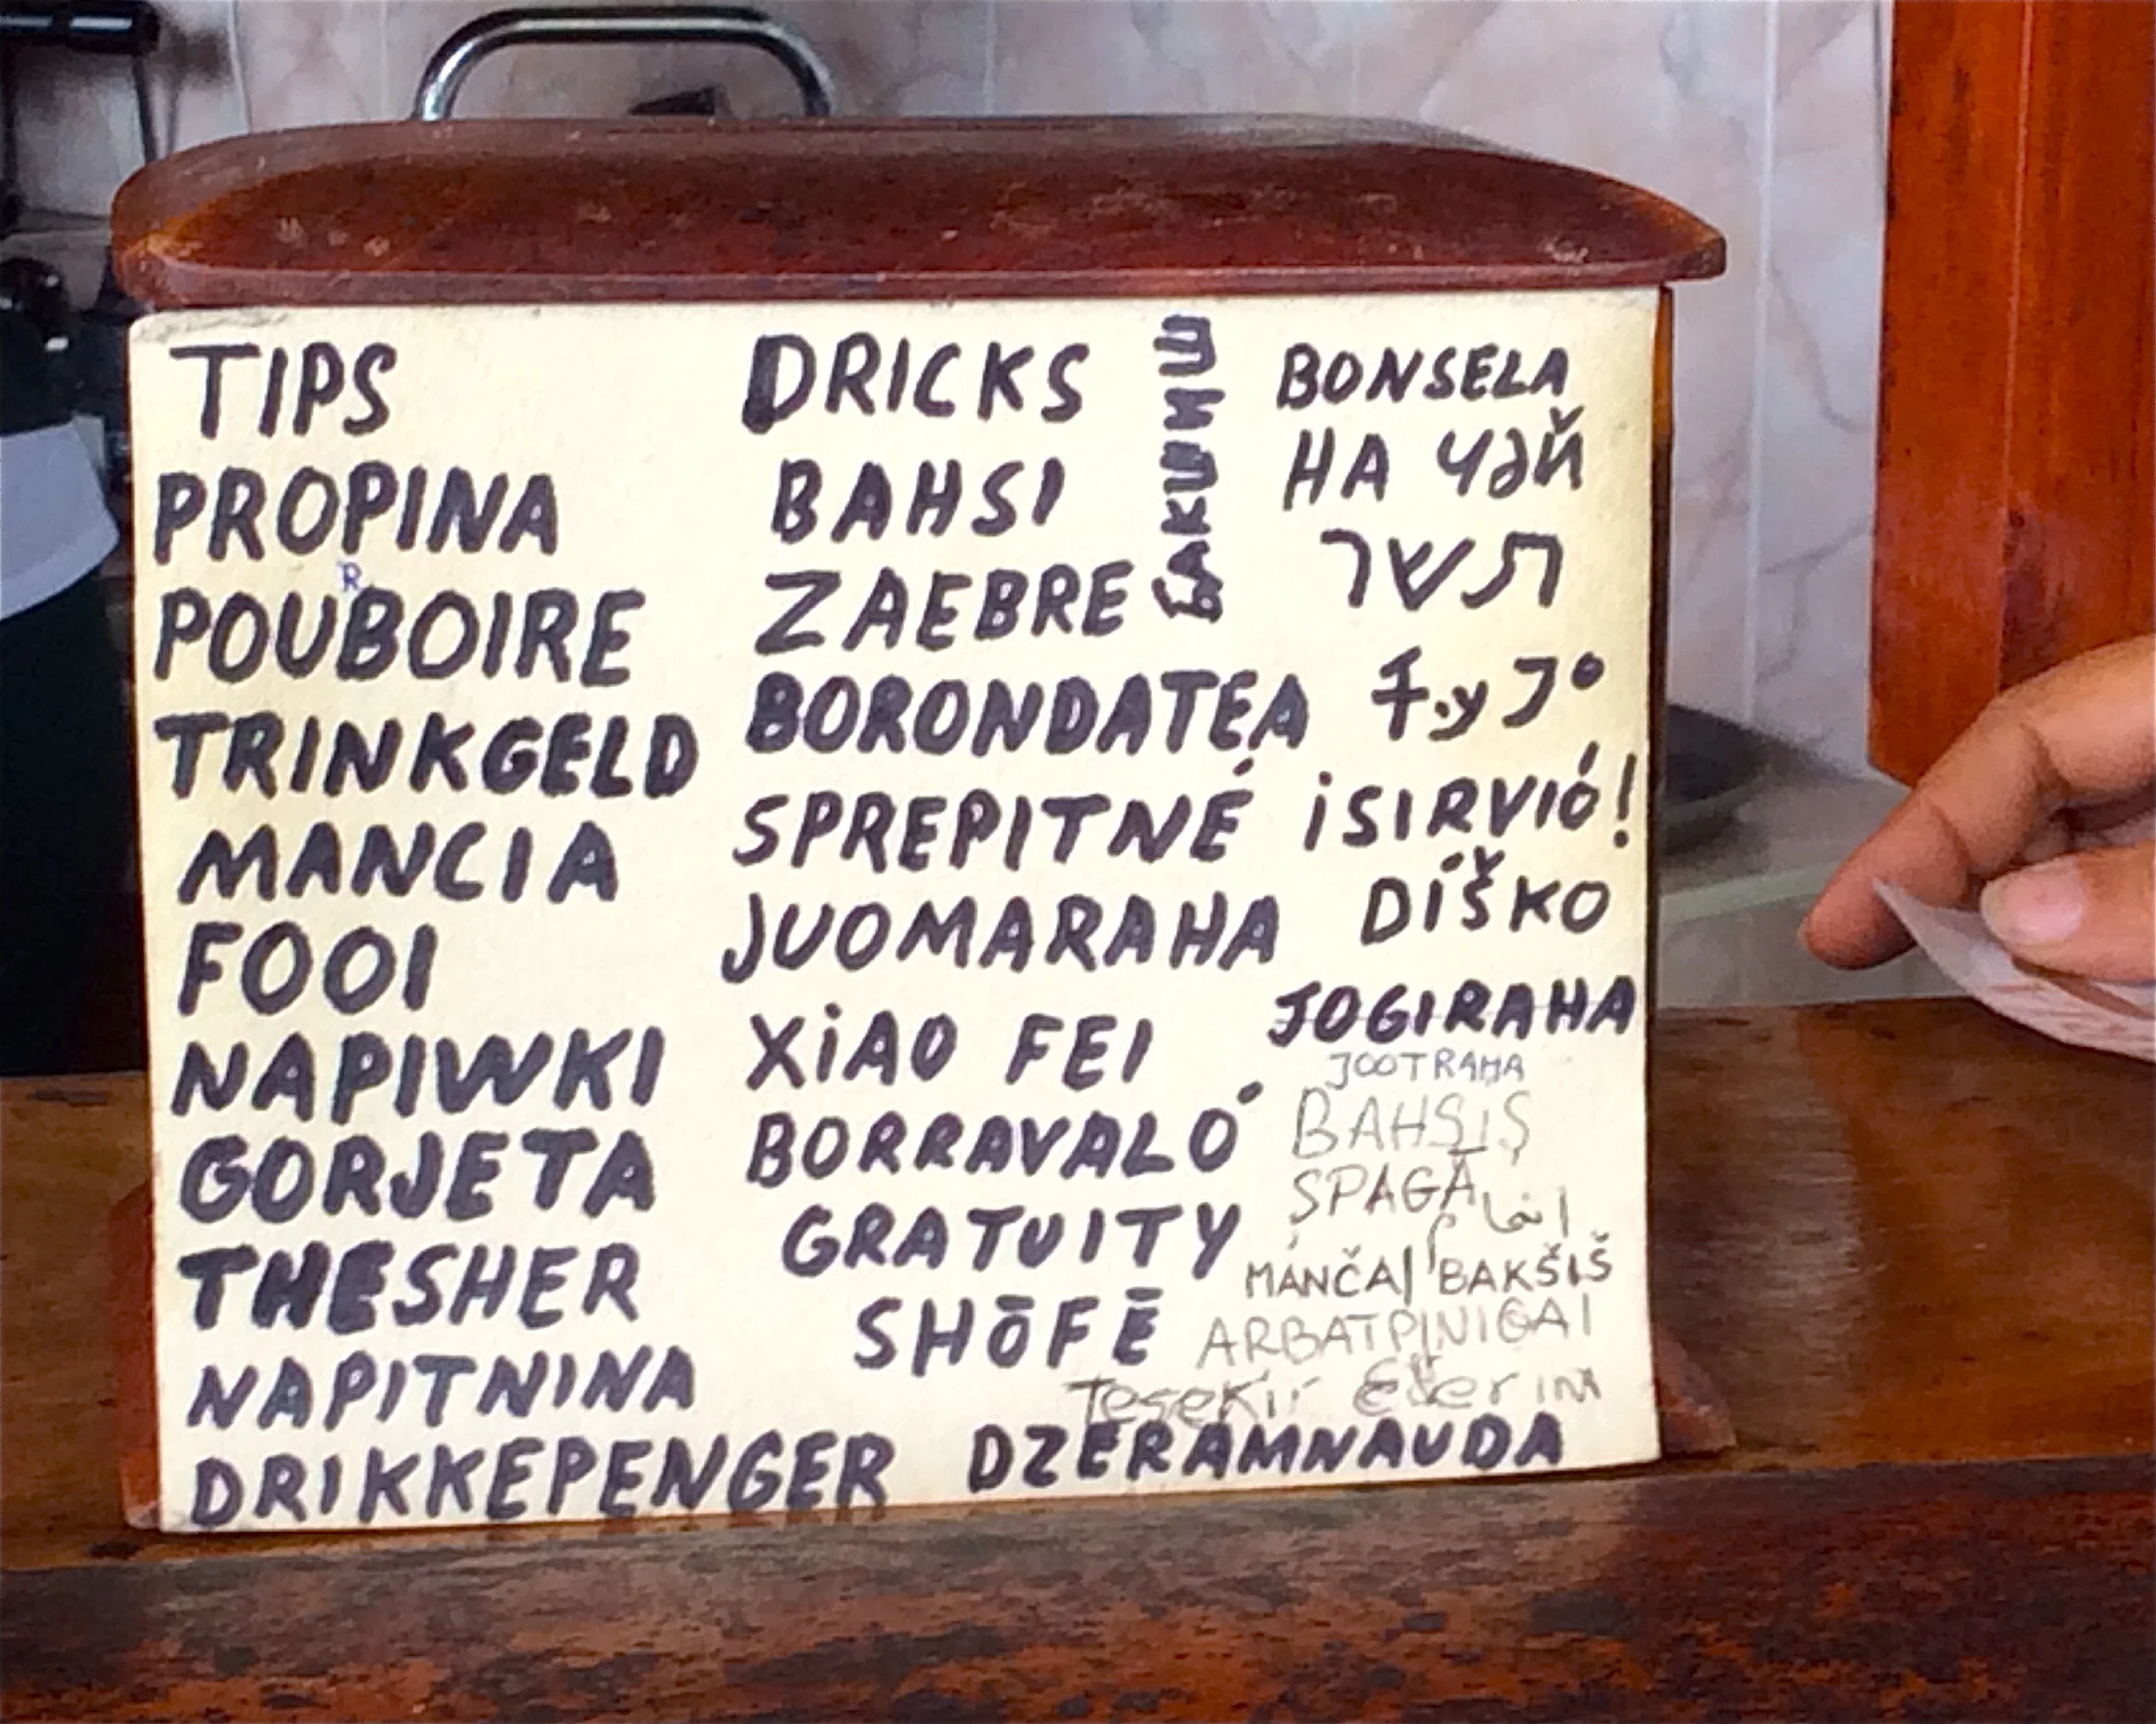 TIPS
PROPINA
R
POUBOIRE
TRINKGELD
MANCIA
FOOI
NAPIWKI
GORJETA
THESHER
NAPITNINA
DRIKKEPENGER
DRICKS
BAHSI
ZAEBRE
BORONDATEA
SPREPITNÉ
JUOMARAHA
XiAO FEI
BORRAVALÓ
GRATUITY
SHŌFĒ
БАКШИШ
BONSELA
НА ЧАЙ
תשר
¡SIRVIÓ!
DÍŠKO
JOGIRAHA
JOOTRAHA
BAHSIŞ
ŞPAGĂ
MANČA/BAKŠIŠ
ARBATPINIGAI
Teşekir Ederim
DZERAMNAUDA